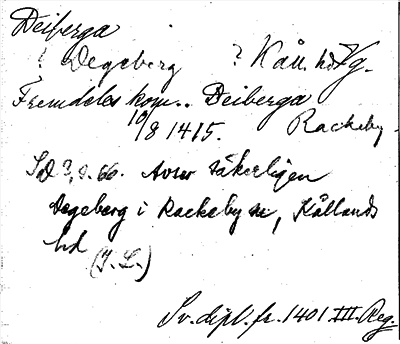 Deiberga
? Degeberg ? Kåll. hd Vg.
Fremdeles kom.. Deiberga
10/8 1415. Rackeby
SD 2, s. 66. Avser säkerligen
Degeberg i Rackeby sn, Kållands
hd (I. L.)
Sv. dipl. fr. 1401 III. Reg.